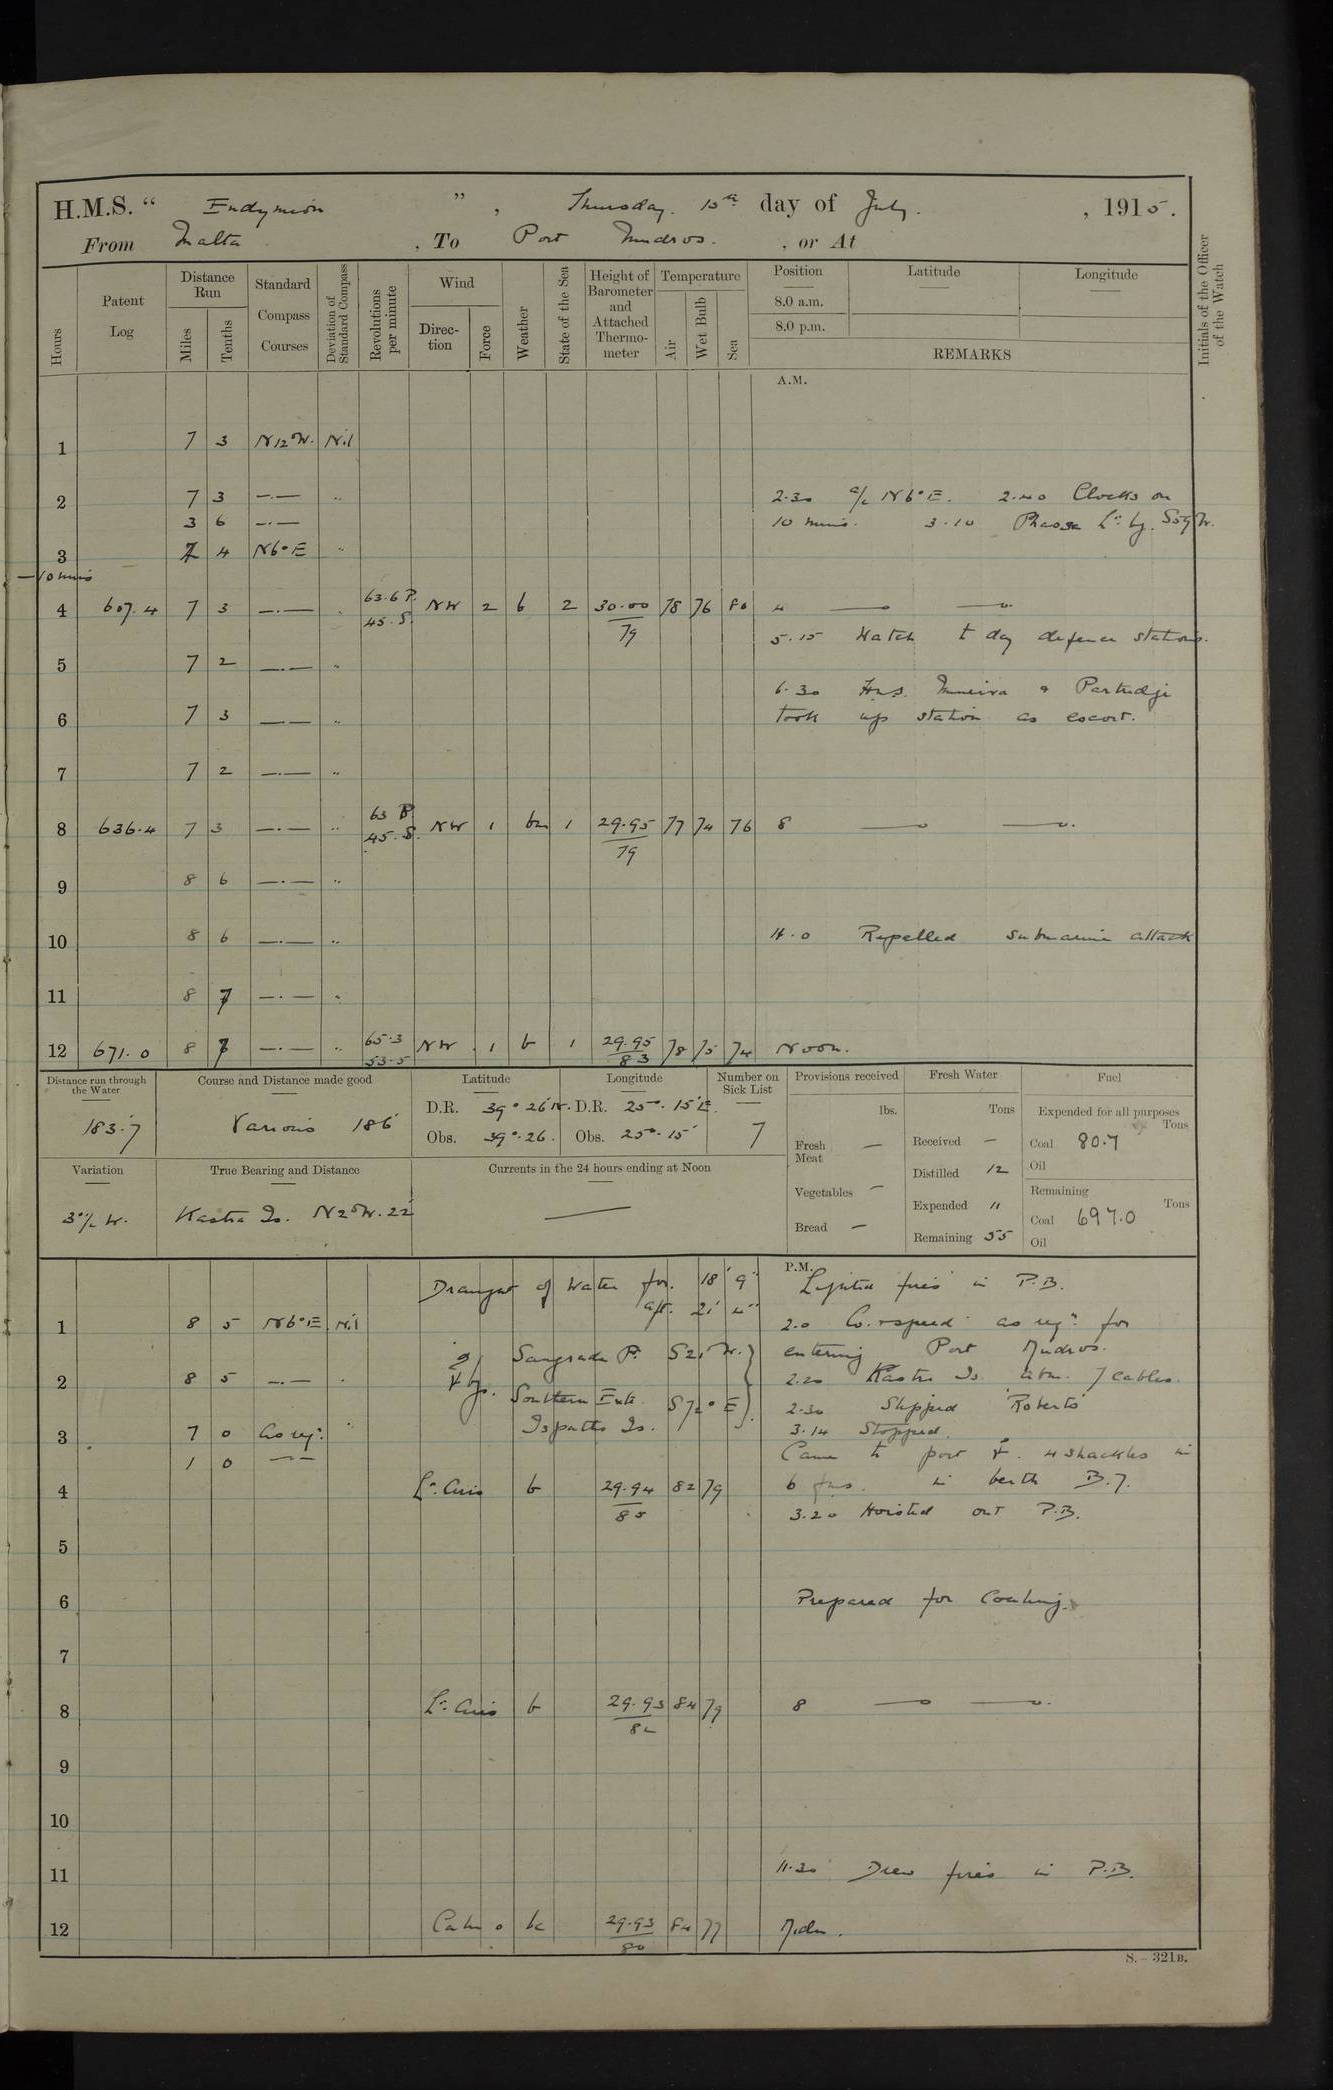 H.M.S. " Endymion ", Thursday. 15th day of July. , 1915.
From Malta , To Port Mudros. , or At
Hours
Patent Log
Distance Run
Miles
Tenths
Standard Compass Courses
Deviation of Standard Compass
Revolutions per minute
Wind
Direc-tion
Force
Weather
State of the Sea
Height of Barometer and Attached Thermo-meter
Temperature
Air
Wet Bulb
Sea
Position
8.0 a.m.
8.0 p.m.
Latitude
Longitude
REMARKS
Initials of the Officer of the Watch
A.M.
1 7 3 N12°W. Nil
2 7 3 —.— " 2.30 a/c N6°E. 2.40 Clocks on
3 6 —.— 10 mins. 3.10 Lt. by. S59W.
3 7 4 N6°E "
—10 mins
4 607.4 7 3 —.— " 63.6 P. 45. S. NW 2 b 2 30.00 79 78 76 80 4
5.15 Watch to day defence stations.
5 7 2 —.— "
6.30 HMS. Minerva & Partridge
6 7 3 —.— " took up station as escort.
7 7 2 —.— "
8 636.4 7 3 —.— " 63 P. 45. S. NW 1 bm 1 29.95 79 77 74 76 8
9 8 6 —.— "
10 8 6 —.— " 11.0 Repelled submarine attack
11 8 7 —.— "
12 671.0 8 7 —.— " 65.3 53.5 NW 1 b 1 29.95 83 78 75 74 Noon.
Distance run through the Water
183.7
Course and Distance made good
Various 186'
Latitude
D.R. 39°.26'N.
Obs. 39°.26.
Longitude
D.R. 25°.15'E.
Obs. 25°.15'
Number on Sick List
7
Variation
3°½ W.
True Bearing and Distance
Kastro Is. N25W. 22'
Currents in the 24 hours ending at Noon
Provisions received
lbs.
Fresh Meat —
Vegetables —
Bread —
Fresh Water
Tons
Received —
Distilled 12
Expended 11
Remaining 55
Fuel
Expended for all purposes
Tons
Coal 80.7
Oil
Remaining
Tons
Coal 697.0
Oil
P.M.
Draught of Water for. 18' 9" Lighted fires in P.B.
aft. 21' 4"
1 8 5 N6°E. Nil 2.0 Co. & speed as reqd. for
Sangrada Pt. S21°W. entering Port Mudros.
2 8 5 —.— " 2.20 Kastro Is. abm. 7 cables.
Southern Extr. S72°E 2.30 Slipped 'Roberts'
Ispatho Is. 3.14 Stopped.
3 7 0 As req. "
1 0 —.— Came to port 4 shackles in
4 Lt. Airs b 29.94 85 82 79 6 fms. in berth B.7.
3.20 Hoisted out P.B.
5
6 Prepared for Coaling.
7
8 Lt. Airs b 29.93 82 84 79 8
9
10
11 11.30 Drew fires in P.B.
12 Calm 0 bc 29.93 80 84 77 Midn.
S.—321B.